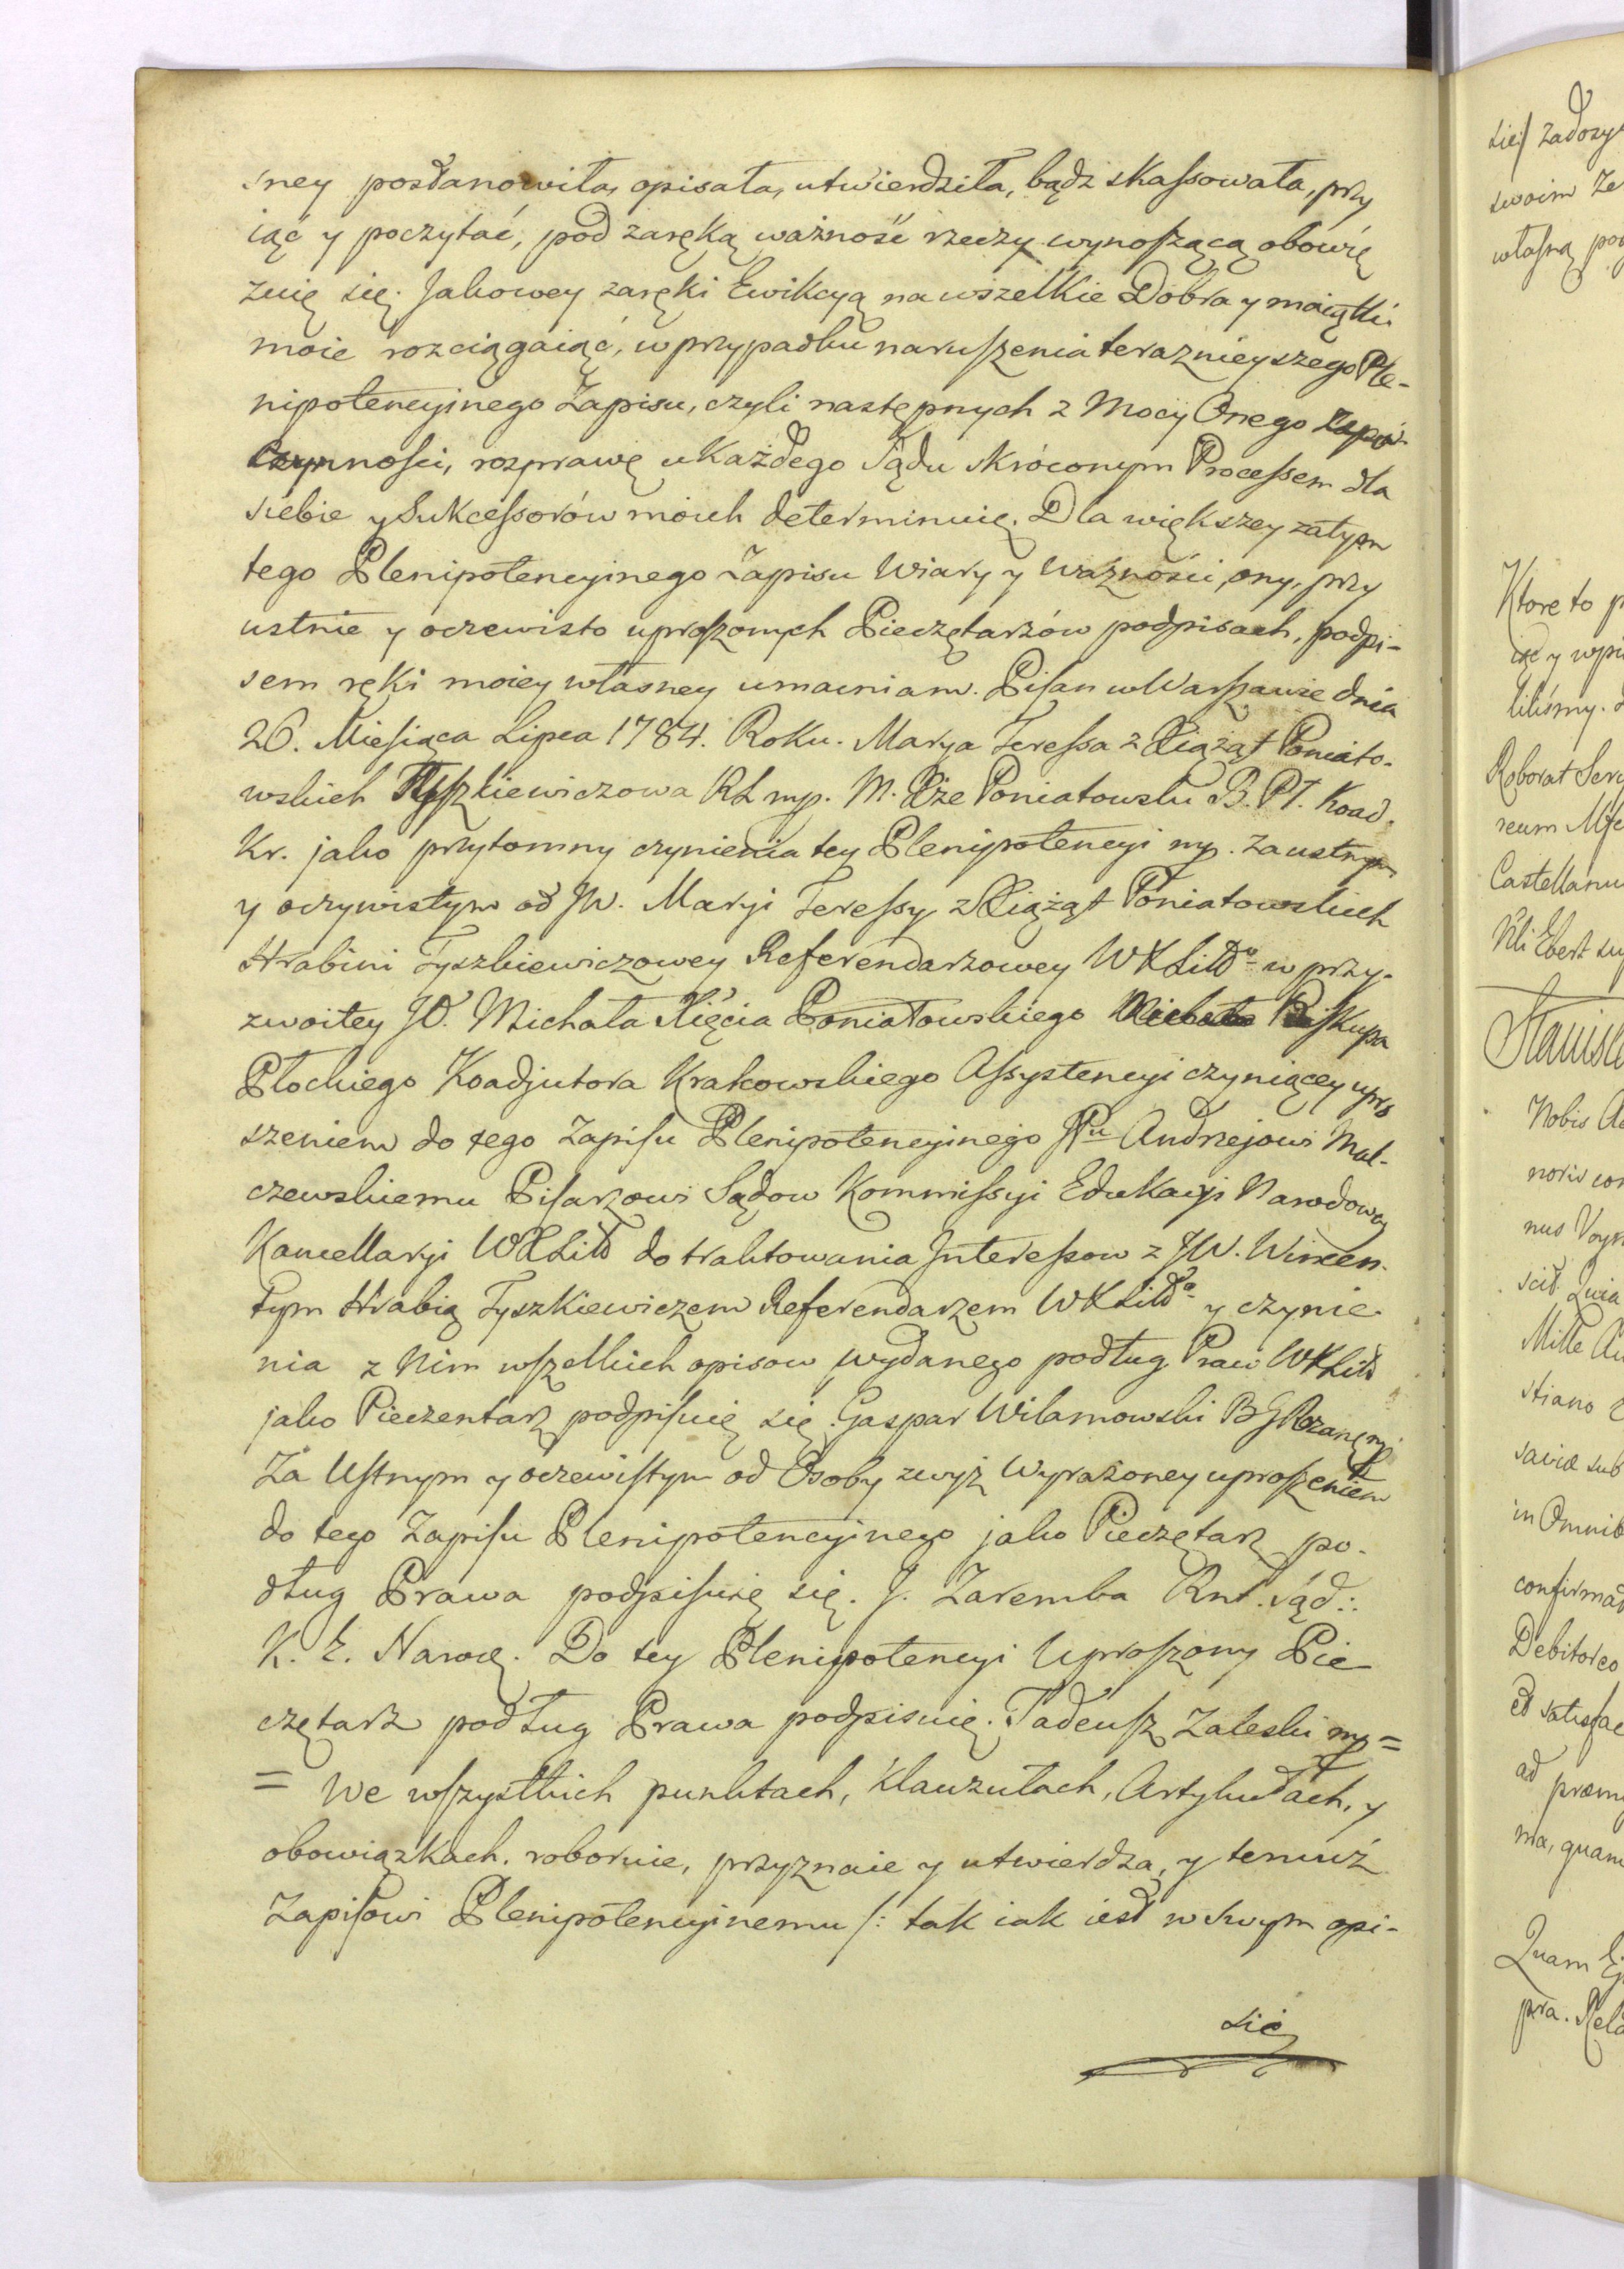 sney postanowiła, opisała, utwierdziła, bądz skassowała, przy
iąć y poczytać, pod zaręką ważność rzeczy wynoszącą obowię
zuię się. Jakowey zaręki Ewikcyą na wszelkie Dobra y maiątki
moie rozciągaiąć, w przypadku naruszenia teraznieyszego Ple-
nipotencyinego Zapisu, czyli następnych z Mocy Onego
Czynnosci, rozprawę u Każdego Sądu skróconym Processem dla
siebie y Sukcessorów moich determinuię. Dla większey zatym
tego Plenipotencyinego Zapisu Wiary y Ważności, ony, przy
ustnie y oczewisto uproszonych Pieczętarzów podpisach, podpi-
sem ręki moiey własney umacniam. Pisan w Warszawie dnia
26. Miesiąca Lipca 1784. Roku. Marya Teressa z Xiążąt Poniato-
wskich Tyszkiewiczowa RL mp. M. Xże Poniatowski B. Pł. Koad.
Kr. jako przytomny czynienia tey Plenipotencyi mp. Za ustnym
y oczywistym od JW. Maryi Teressy z Xiążąt Poniatowskich
Hrabini Tyszkiewiczowey Referendarzowey WXLittº w przy-
zwoitey JO. Michała Xięcia Poniatowskiego Biskupa
Płockiego Koadjutora Krakowskiego Assystencyi czyniącey upro
szeniem do tego Zapisu Plenipotencyinego JPu Andrzejowi Mal-
czewskiemu Pisarzowi Sądow Kommissyi Edukacyi Narodowey
Kancellaryi WXLitt do traktowania Interessow z JW. Wincen-
tym Hrabią Tyszkiewiczem Referendarzem WXLittº y czynie-
nia z Nim wszelkich opisow wydanego podług Praw WXLitt
jako Pieczentarz podpisuię się. Gaspar Wilamowski BGRozan. mp
Za Ustnym y oczewistym od Osoby zwyż Wyrażoney uproszeniem
do tego Zapisu Plenipotencyjnego jako Pieczętarz po-
dług Prawa podpisuię się. J. Zaremba Rnt. Sąd:.
K. E. Narod. Do tey Plenipotencyi Uproszony Pie
czętarz podług Prawa podpisuię. Tadeusz Zaleski mp =
= We wszystkich punktach, Klauzułach, Artykułach, y
obowiązkach. roboruie, przyznaie y utwierdza, y temuż
Zapisowi Plenipotencyjnemu /: tak iak iest w swym opi-
sie
sie/ zadosyć
swoim Ze
własną
Ktore to
y
liliśmy.
Roborat
reum
Castellanu
Ebert
Stanisl
Nobis
noris
nus
scit
Mille
stiano
saviæ sub
in Omnib
confirmat
Debitores
et satisfac
ad præm
ma, quam
Quam
pra.